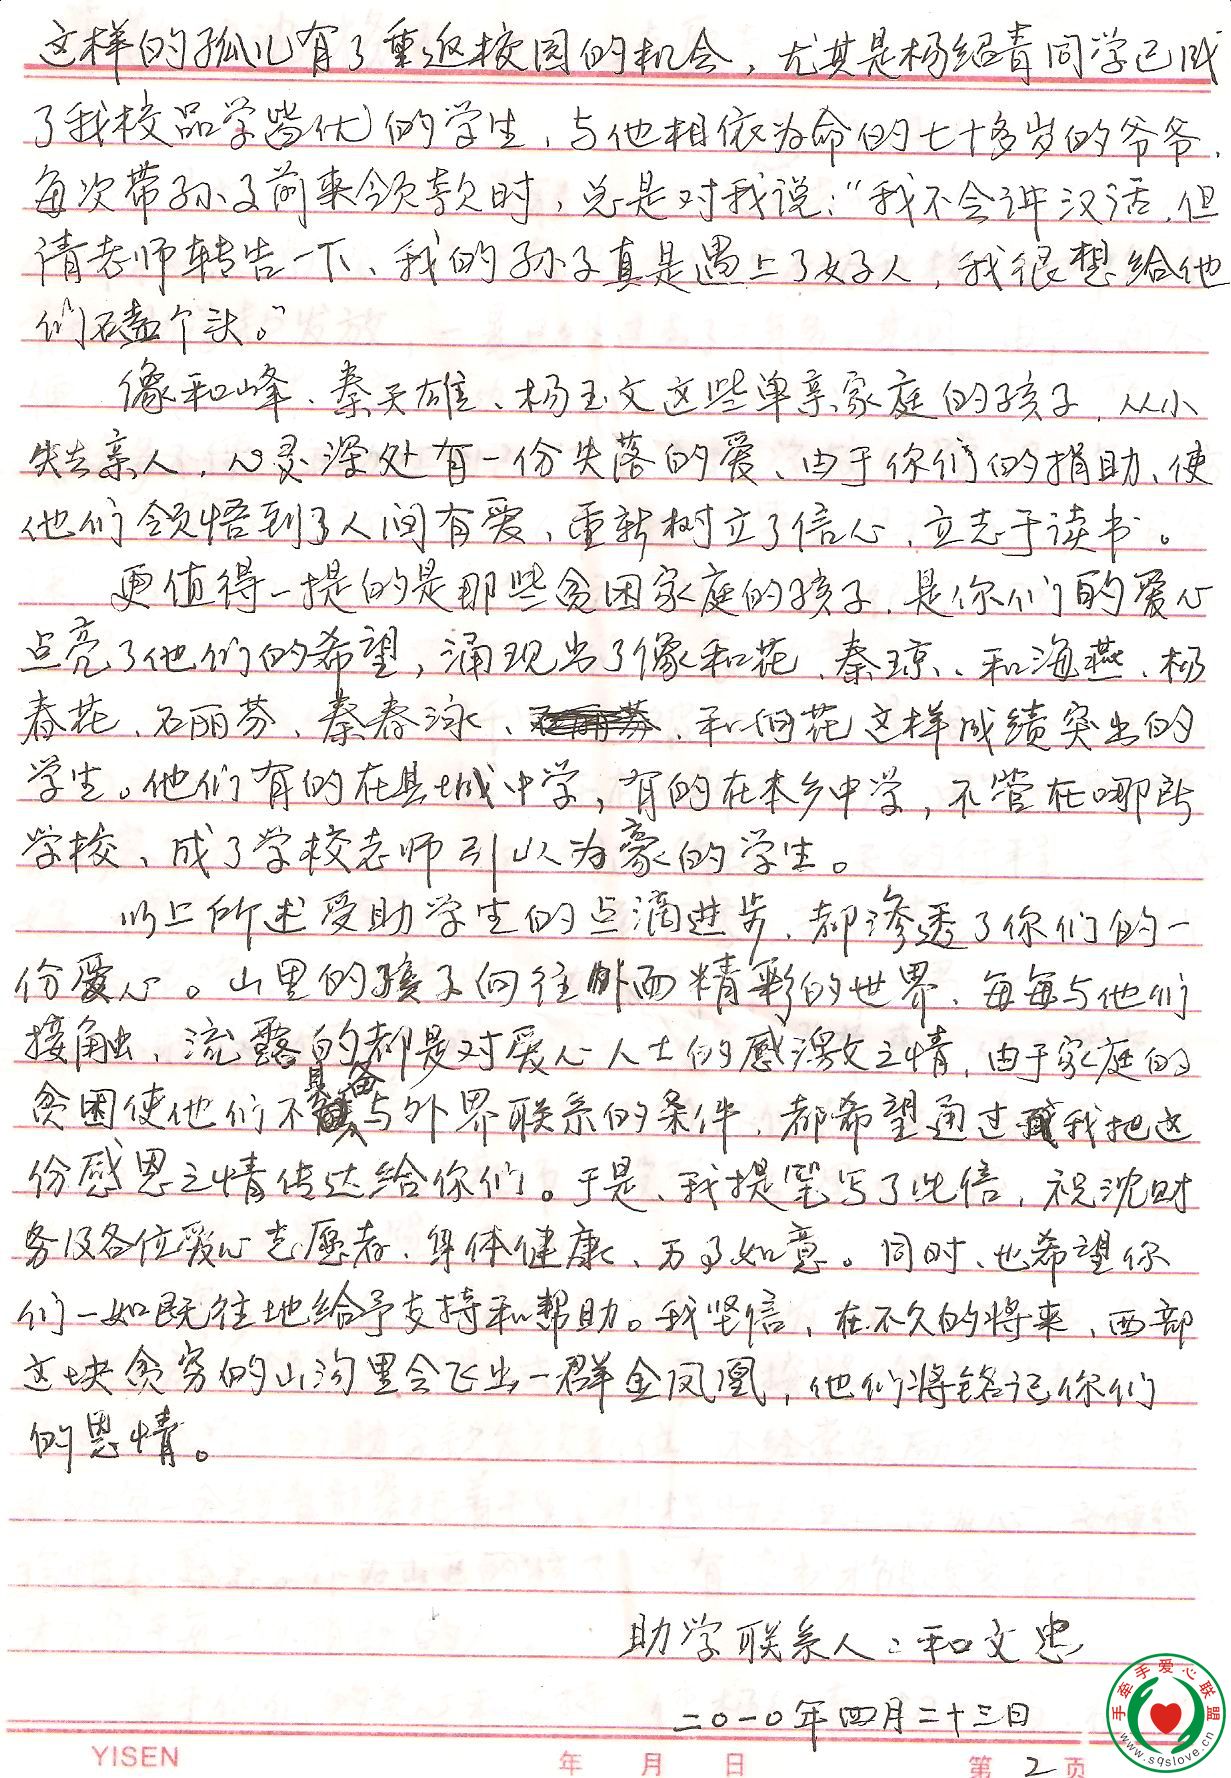 这样的孤儿有了重返校园的机会，尤其是杨绍青同学已成
了我校品学皆优的学生，与他相依为命的七十多岁的爷爷，
每次带孙子前来领款时，总是对我说：“我不会讲汉话，但
请老师转告一下、我的孙子真是遇上了好人，我很想给他
们磕个头。”
像和峰、秦天雄、杨玉文这些单亲家庭的孩子，从小
失去亲人，心灵深处有一份失落的爱、由于你们的捐助、使
他们领悟到了人间有爱，重新树立了信心，立志于读书。
更值得一提的是那些贫困家庭的孩子，是你们的爱心
点亮了他们的希望，涌现出了像和花、秦琼、和海燕、杨
春花、石丽芬、秦春泳、和花这样成绩突出的
学生。他们有的在县城中学，有的在本乡中学，不管在哪所
学校、成了学校老师引以为豪的学生。
以上所述受助学生的点滴进步，都渗透了你们的一
份爱心。山里的孩子向往外面精彩的世界，每每与他们
接触，流露的都是对爱心人士的感激之情，由于家庭的
贫困使他们不具备与外界联系的条件，都希望通过我把这
份感恩之情传达给你们。于是、我提笔写了此信，祝沈财
务及各位爱心志愿者、身体健康、万事如意。同时、也希望你
们一如既往地给予支持和帮助。我坚信，在不久的将来、西部
这块贫穷的山沟里会飞出一群金凤凰，他们将铭记你们
的恩情。
助学联系人：和文忠
二〇一〇年四月二十三日
YISEN 年 月 日 第 2 页
手牵手爱心联盟
www.sqslove.cn